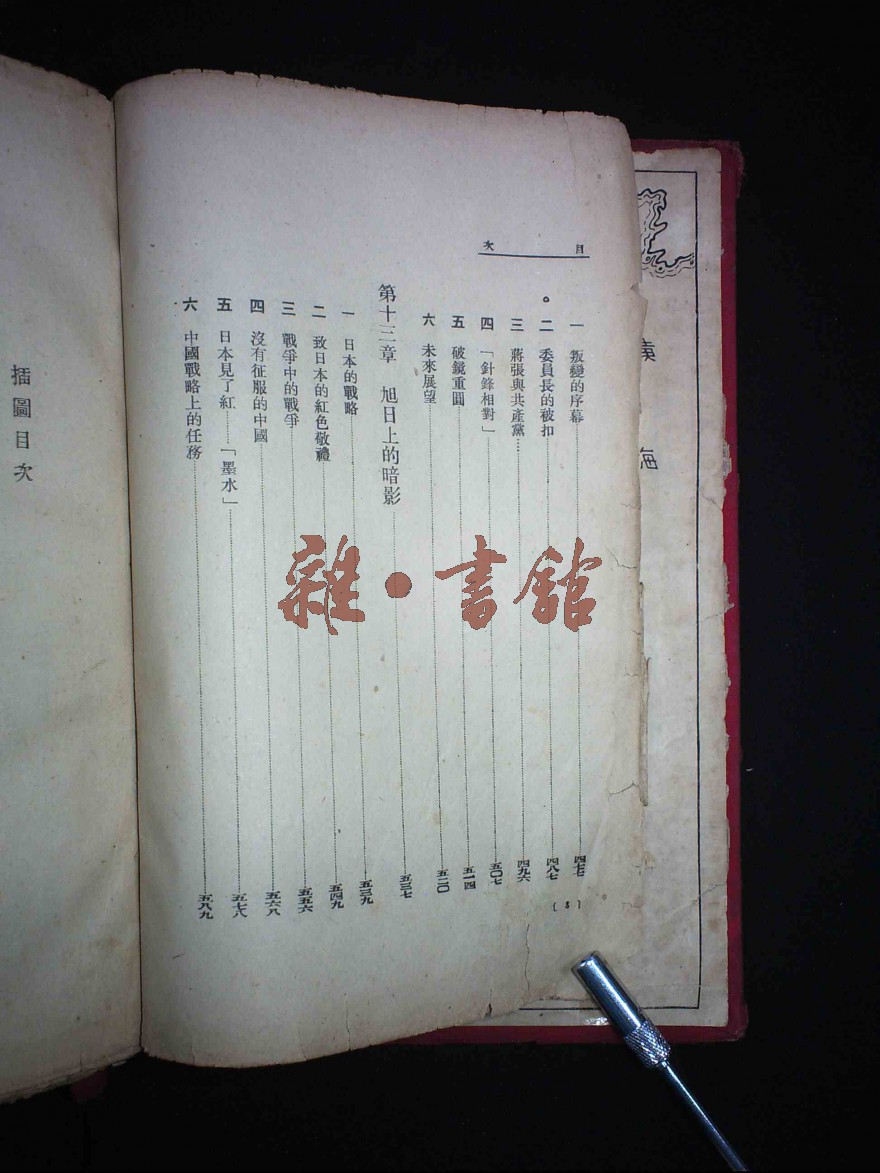 目次
一 叛變的序幕 四七七
二 委員長的被扣 四八七
三 蔣張與共產黨 四九六
四 「針鋒相對」 五〇七
五 破鏡重圓 五一四
六 未來展望 五二〇
第十三章 旭日上的暗影 五三七
一 日本的戰略 五三九
二 致日本的紅色敬禮 五四九
三 戰爭中的戰爭 五五六
四 沒有征服的中國 五六八
五 日本見了紅……「墨水」 五七八
六 中國戰略上的任務 五八九
插圖目次
雜·書館
海